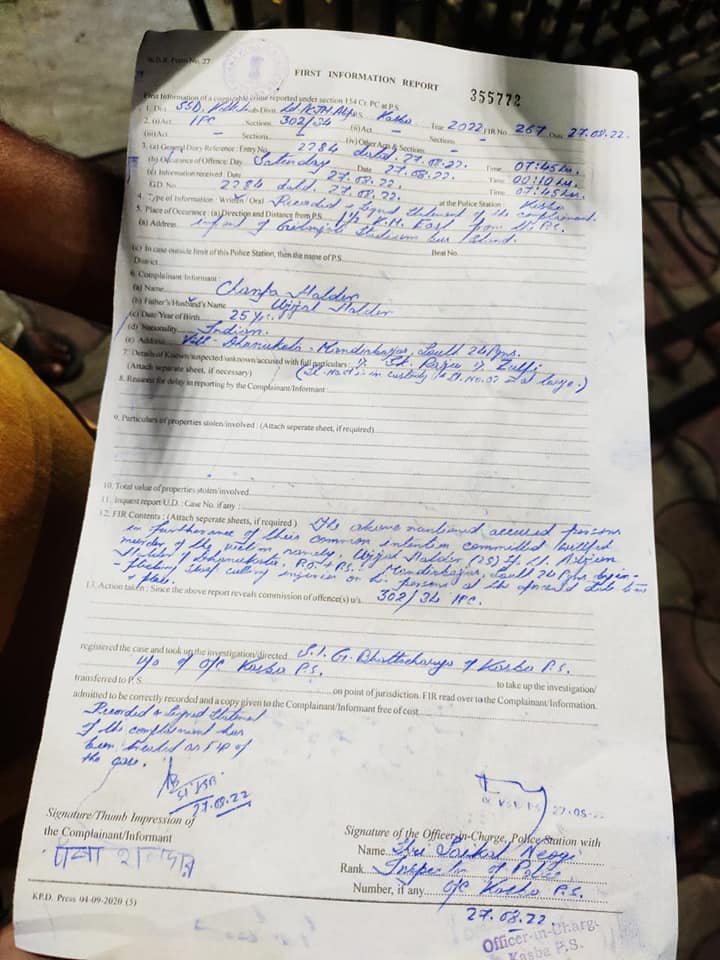 W.B.R. Form No. 27
FIRST INFORMATION REPORT
355772
First Information of a cognizable crime reported under section 154 Cr. PC at P.S.
1. Dist. SSD, Kolkata Sub-Divn. Ld. ACJM, Alip P.S. Kasba Year 2022 FIR No. 267 Date 27.08.22.
2. (i) Act IPC Sections 302/34 (ii) Act - Sections -
(iii) Act - Sections - (iv) Other Acts & Sections -
3. (a) General Diary Reference : Entry No. 2284 dated. 27.08.22. Time 07:45 hrs.
(b) Occurance of Offence: Day Saturday Date 27.08.22. Time 00:10 hrs.
(c) Information received : Date 27.08.22. Time 07:45 hrs.
G.D. No. 2284 dated. 27.08.22. at the Police Station : Kasba
4. Type of Information : Written / Oral Recorded & signed statement of the complainant.
5. Place of Occurrence : (a) Direction and Distance from P.S. K.M. East from P.S.
(b) Address infront of Stadium bus stand.
Beat No.
(c) In case outside limit of this Police Station, then the name of P.S.
District
6. Complainant Informant :
(a) Name Champa Halder
(b) Father's/Husband's Name Ujjal Halder
(c) Date/Year of Birth 25 Yrs.
(d) Nationality Indian.
(e) Address Vill- Dhamukata. Mandirbazar, South 24 Pgns.
7. Details of Known/suspected/unknown/accused with full particulars : Sk
(Attach separate sheet, if necessary) in custody & Sl. No. 02 at large.)
8. Reasons for delay in reporting by the Complainant/Informant :
9. Particulars of properties stolen/involved : (Attach seperate sheet, if required)
10. Total value of properties stolen/involved
11. Inquest report U.D. : Case No. if any :
12. FIR Contents : (Attach seperate sheets, if required) The above mentioned accused persons
in furtherance of their common intention committed
murder of the victim namely, Ujjal Halder
Halder of Dhamukata, P.O. + P.S. Mandirbazar, South 24 Pgns by in-
-flicting sharp cutting injuries on his person at the aforesaid date time
& place.
13. Action taken : Since the above report reveals commission of offence(s) u/s. 302/34 IPC.
registered the case and took up the investigation/directed S.I. G. Bhattacharya of Kasba P.S.
of O/C Kasba P.S. to take up the investigation/
transferred to P.S. on point of jurisdiction. FIR read over to the Complainant/Information.
admitted to be correctly recorded and a copy given to the Complainant/Informant free of cost.
Recorded & signed statement
of the complainant has
been treated as FIR of
the case.
27.08.22
27.08.22
Signature/Thumb Impression of
the Complainant/Informant
চম্পা হালদার
Signature of the Officer-in-Charge, Police Station with
Name Saikat Neogi
Rank Inspector of Police
Number, if any O/C Kasba P.S.
27.08.22.
Officer-in-Charge
Kasba P.S.
K.P.D. Press 04-09-2020 (5)